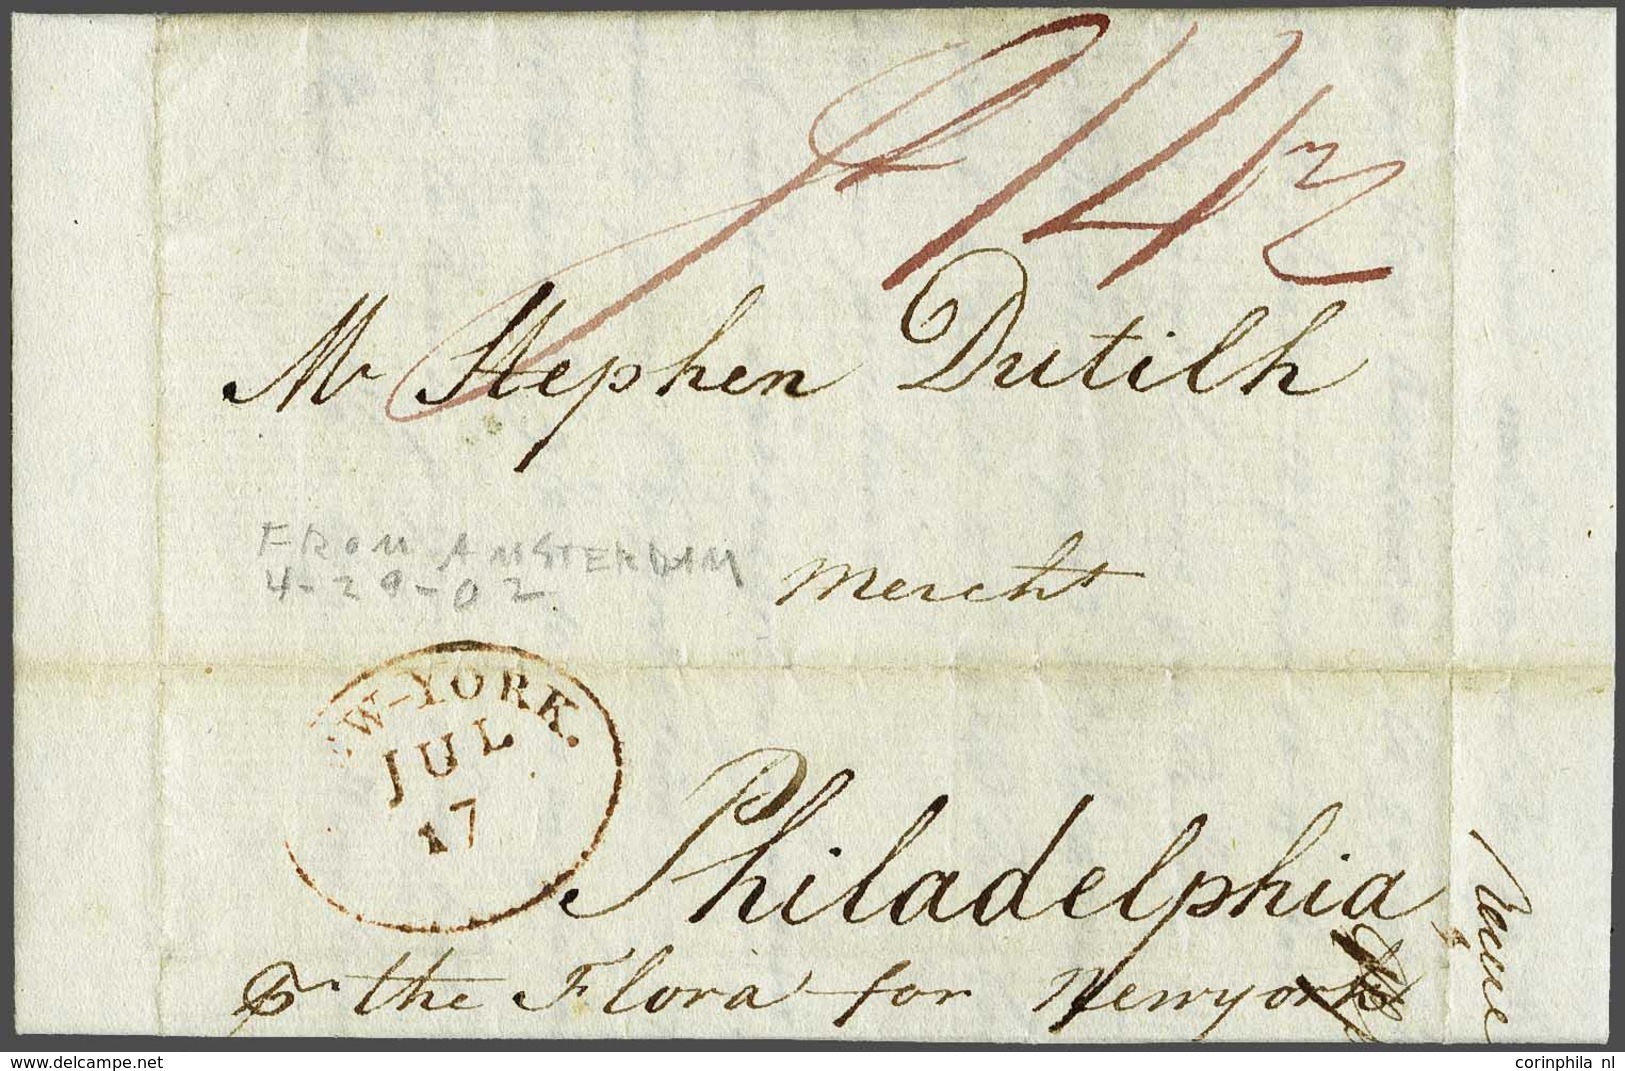 14½
Mr Stephen Dutilh
FROM AMSTERDAM
4-29-02
Mercht
EW-YORK.
JUL
17
Philadelphia
pr the Flora for Newyork
corinphila nl